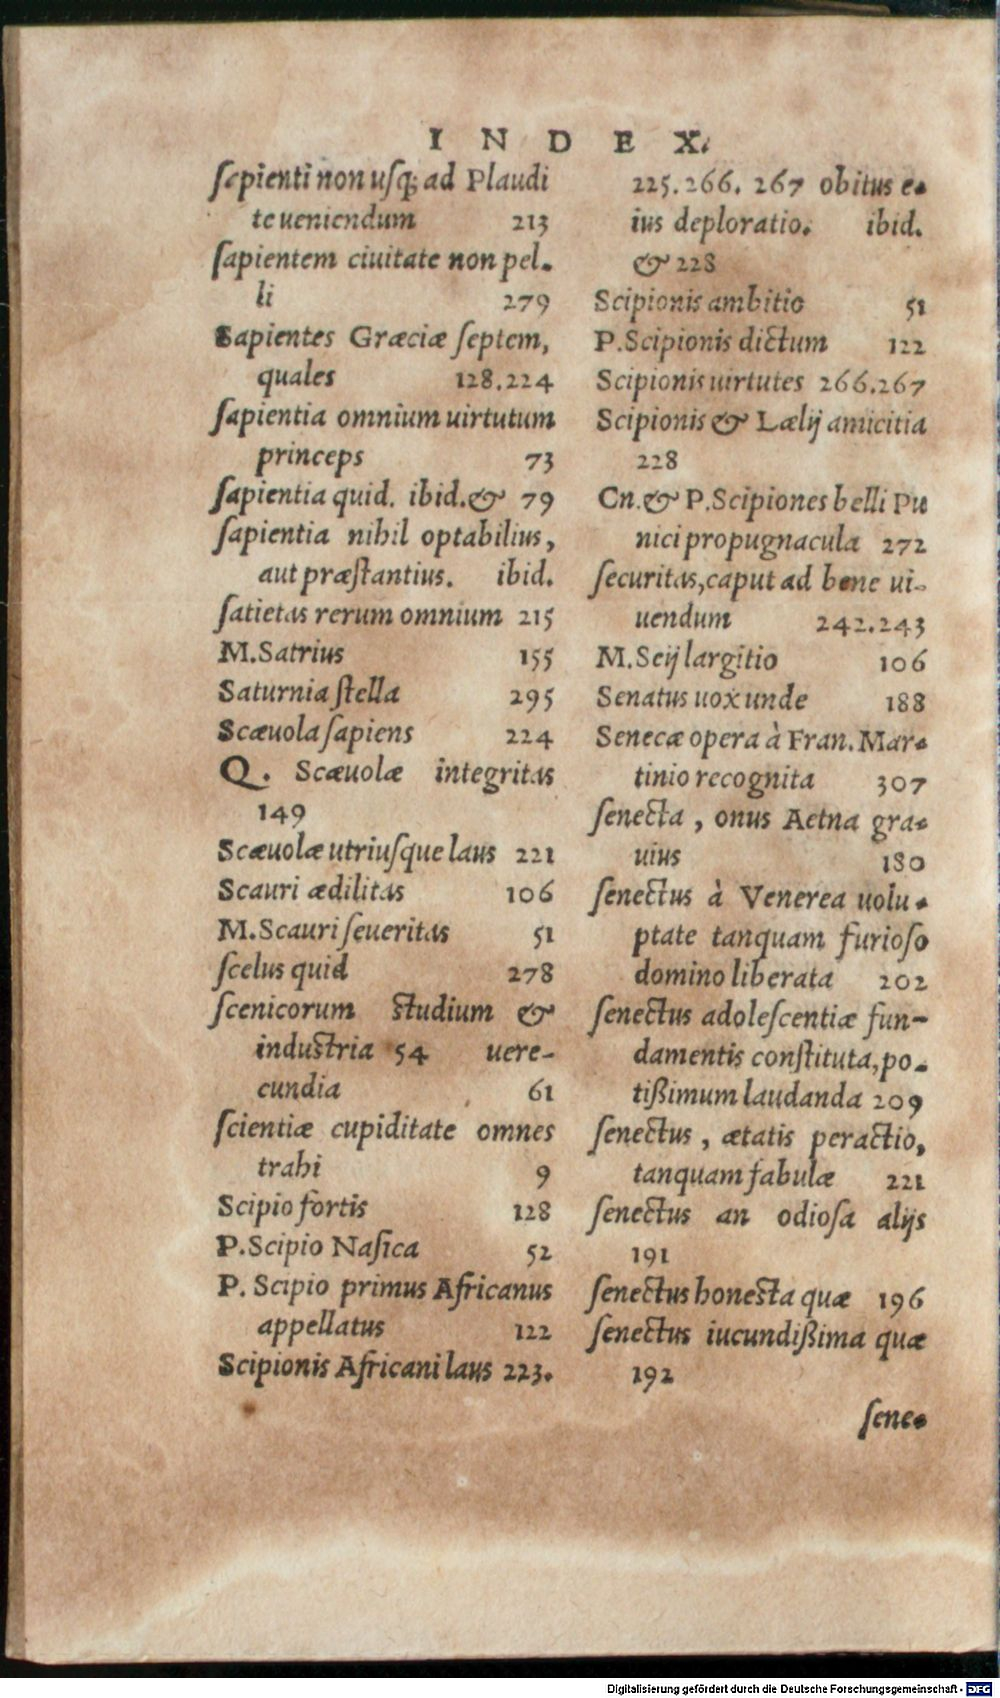 INDEX.
sapienti non usq; ad Plaudi
te ueniendum 213
sapientem ciuitate non pel-
li 279
Sapientes Græciæ septem,
quales 128.224
sapientia omnium uirtutum
princeps 73
sapientia quid. ibid. & 79
sapientia nihil optabilius,
aut præstantius. ibid.
satietas rerum omnium 215
M. Satrius 155
Saturnia stella 295
Scæuola sapiens 224
Q. Scæuolæ integritas
149
Scæuolæ utriusque laus 221
Scauri ædilitas 106
M. Scauri seueritas 51
scelus quid 278
scenicorum studium &
industria 54 uere-
cundia 61
scientiæ cupiditate omnes
trahi 9
Scipio fortis 128
P. Scipio Nasica 52
P. Scipio primus Africanus
appellatus 122
Scipionis Africani laus 223.
225.266. 267 obitus e-
ius deploratio. ibid.
& 228
Scipionis ambitio 51
P. Scipionis dictum 122
Scipionis uirtutes 266.267
Scipionis & Lælij amicitia
228
Cn. & P. Scipiones belli Pu
nici propugnacula 272
securitas, caput ad bene ui-
uendum 242.243
M. Seij largitio 106
Senatus uox unde 188
Senecæ opera à Fran. Mar-
tinio recognita 307
senecta, onus Aetna gra-
uius 180
senectus à Venerea uolu-
ptate tanquam furioso
domino liberata 202
senectus adolescentiæ fun-
damentis constituta, po-
tißimum laudanda 209
senectus, ætatis peractio,
tanquam fabulæ 221
senectus an odiosa alijs
191
senectus honesta quæ 196
senectus iucundißima quæ
192
sene-
Digitalisierung gefördert durch die Deutsche Forschungsgemeinschaft - DFG